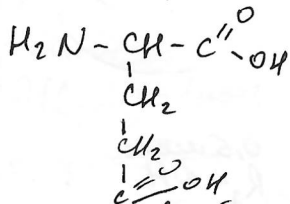 H₂N - CH - C = O
- OH
CH₂
CH₂
C = O - OH